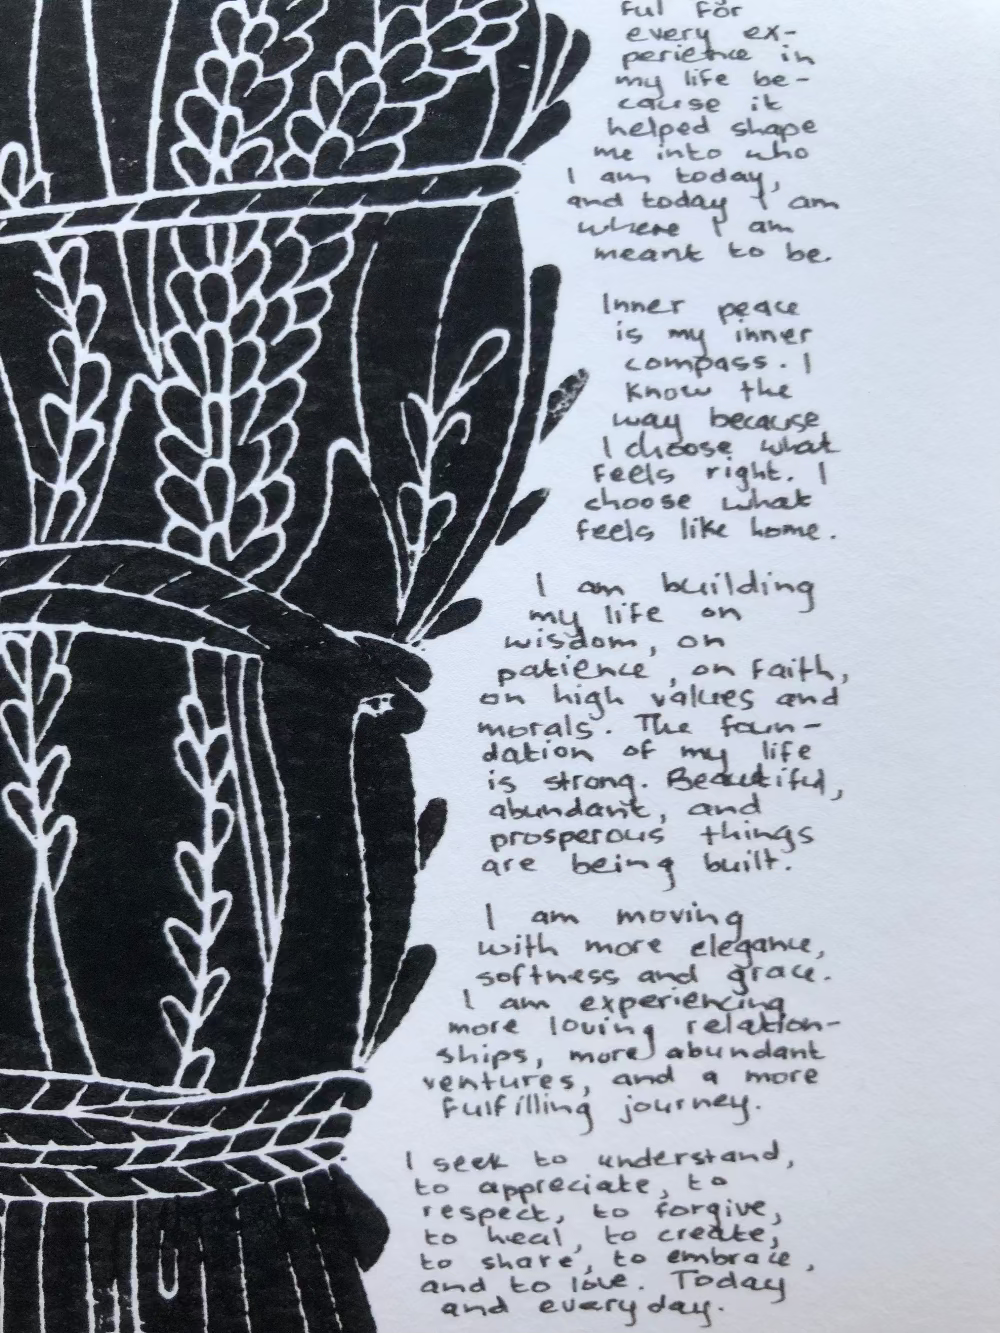 ful for
every ex-
perience in
my life be-
cause it
helped shape
me into who
I am today,
and today I am
where I am
meant to be.
Inner peace
is my inner
compass. I
know the
way because
I choose what
feels right. I
choose what
feels like home.
I am building
my life on
wisdom, on
patience, on faith,
on high values and
morals. The foun-
dation of my life
is strong. Beautiful,
abundant, and
prosperous things
are being built.
I am moving
with more elegance,
softness and grace.
I am experiencing
more loving relation-
ships, more abundant
ventures, and a more
fulfilling journey.
I seek to understand,
to appreciate, to
respect, to forgive,
to heal, to create,
to share, to embrace,
and to love. Today
and everyday.